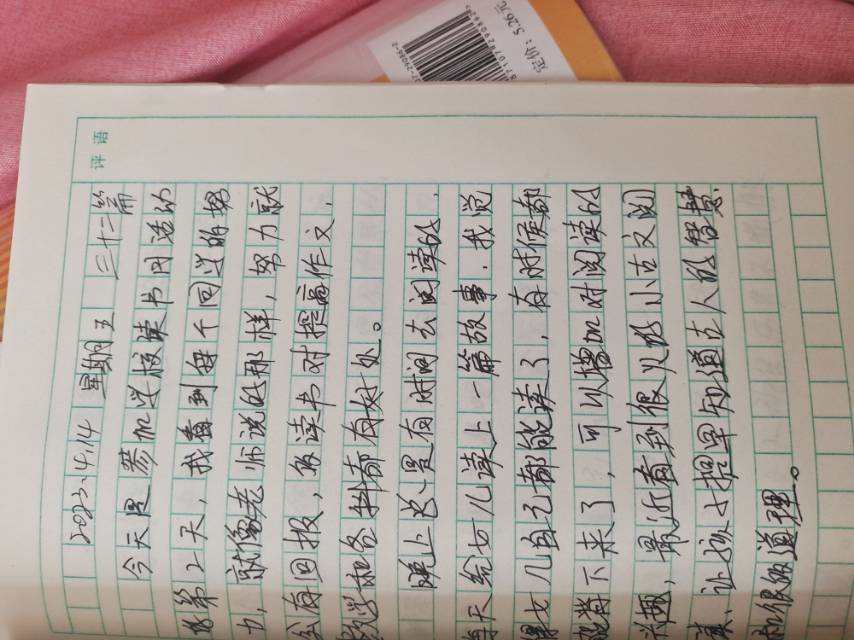 评语
2023.4.14 星期五 三十二篇
今天是参加学校读书月活动
第2天,我看到每个同学的努
力,就像老师说的那样,努力就
会有回报,多读书对提高作文,
数学和各科都有好处。
晚上总是有时间去阅读的,
每天给女儿读上一篇故事,我觉
女儿自己都能读了,有时候都
能背下来了,可以增加对阅读的
兴趣,最近看到很火的小古文阅
读,让孩子提早知道古人的智慧
和很多道理。
定价:5.26元